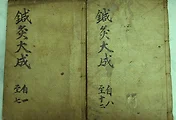 鍼灸大成
自一
至七
鍼灸大成
自八
至十二